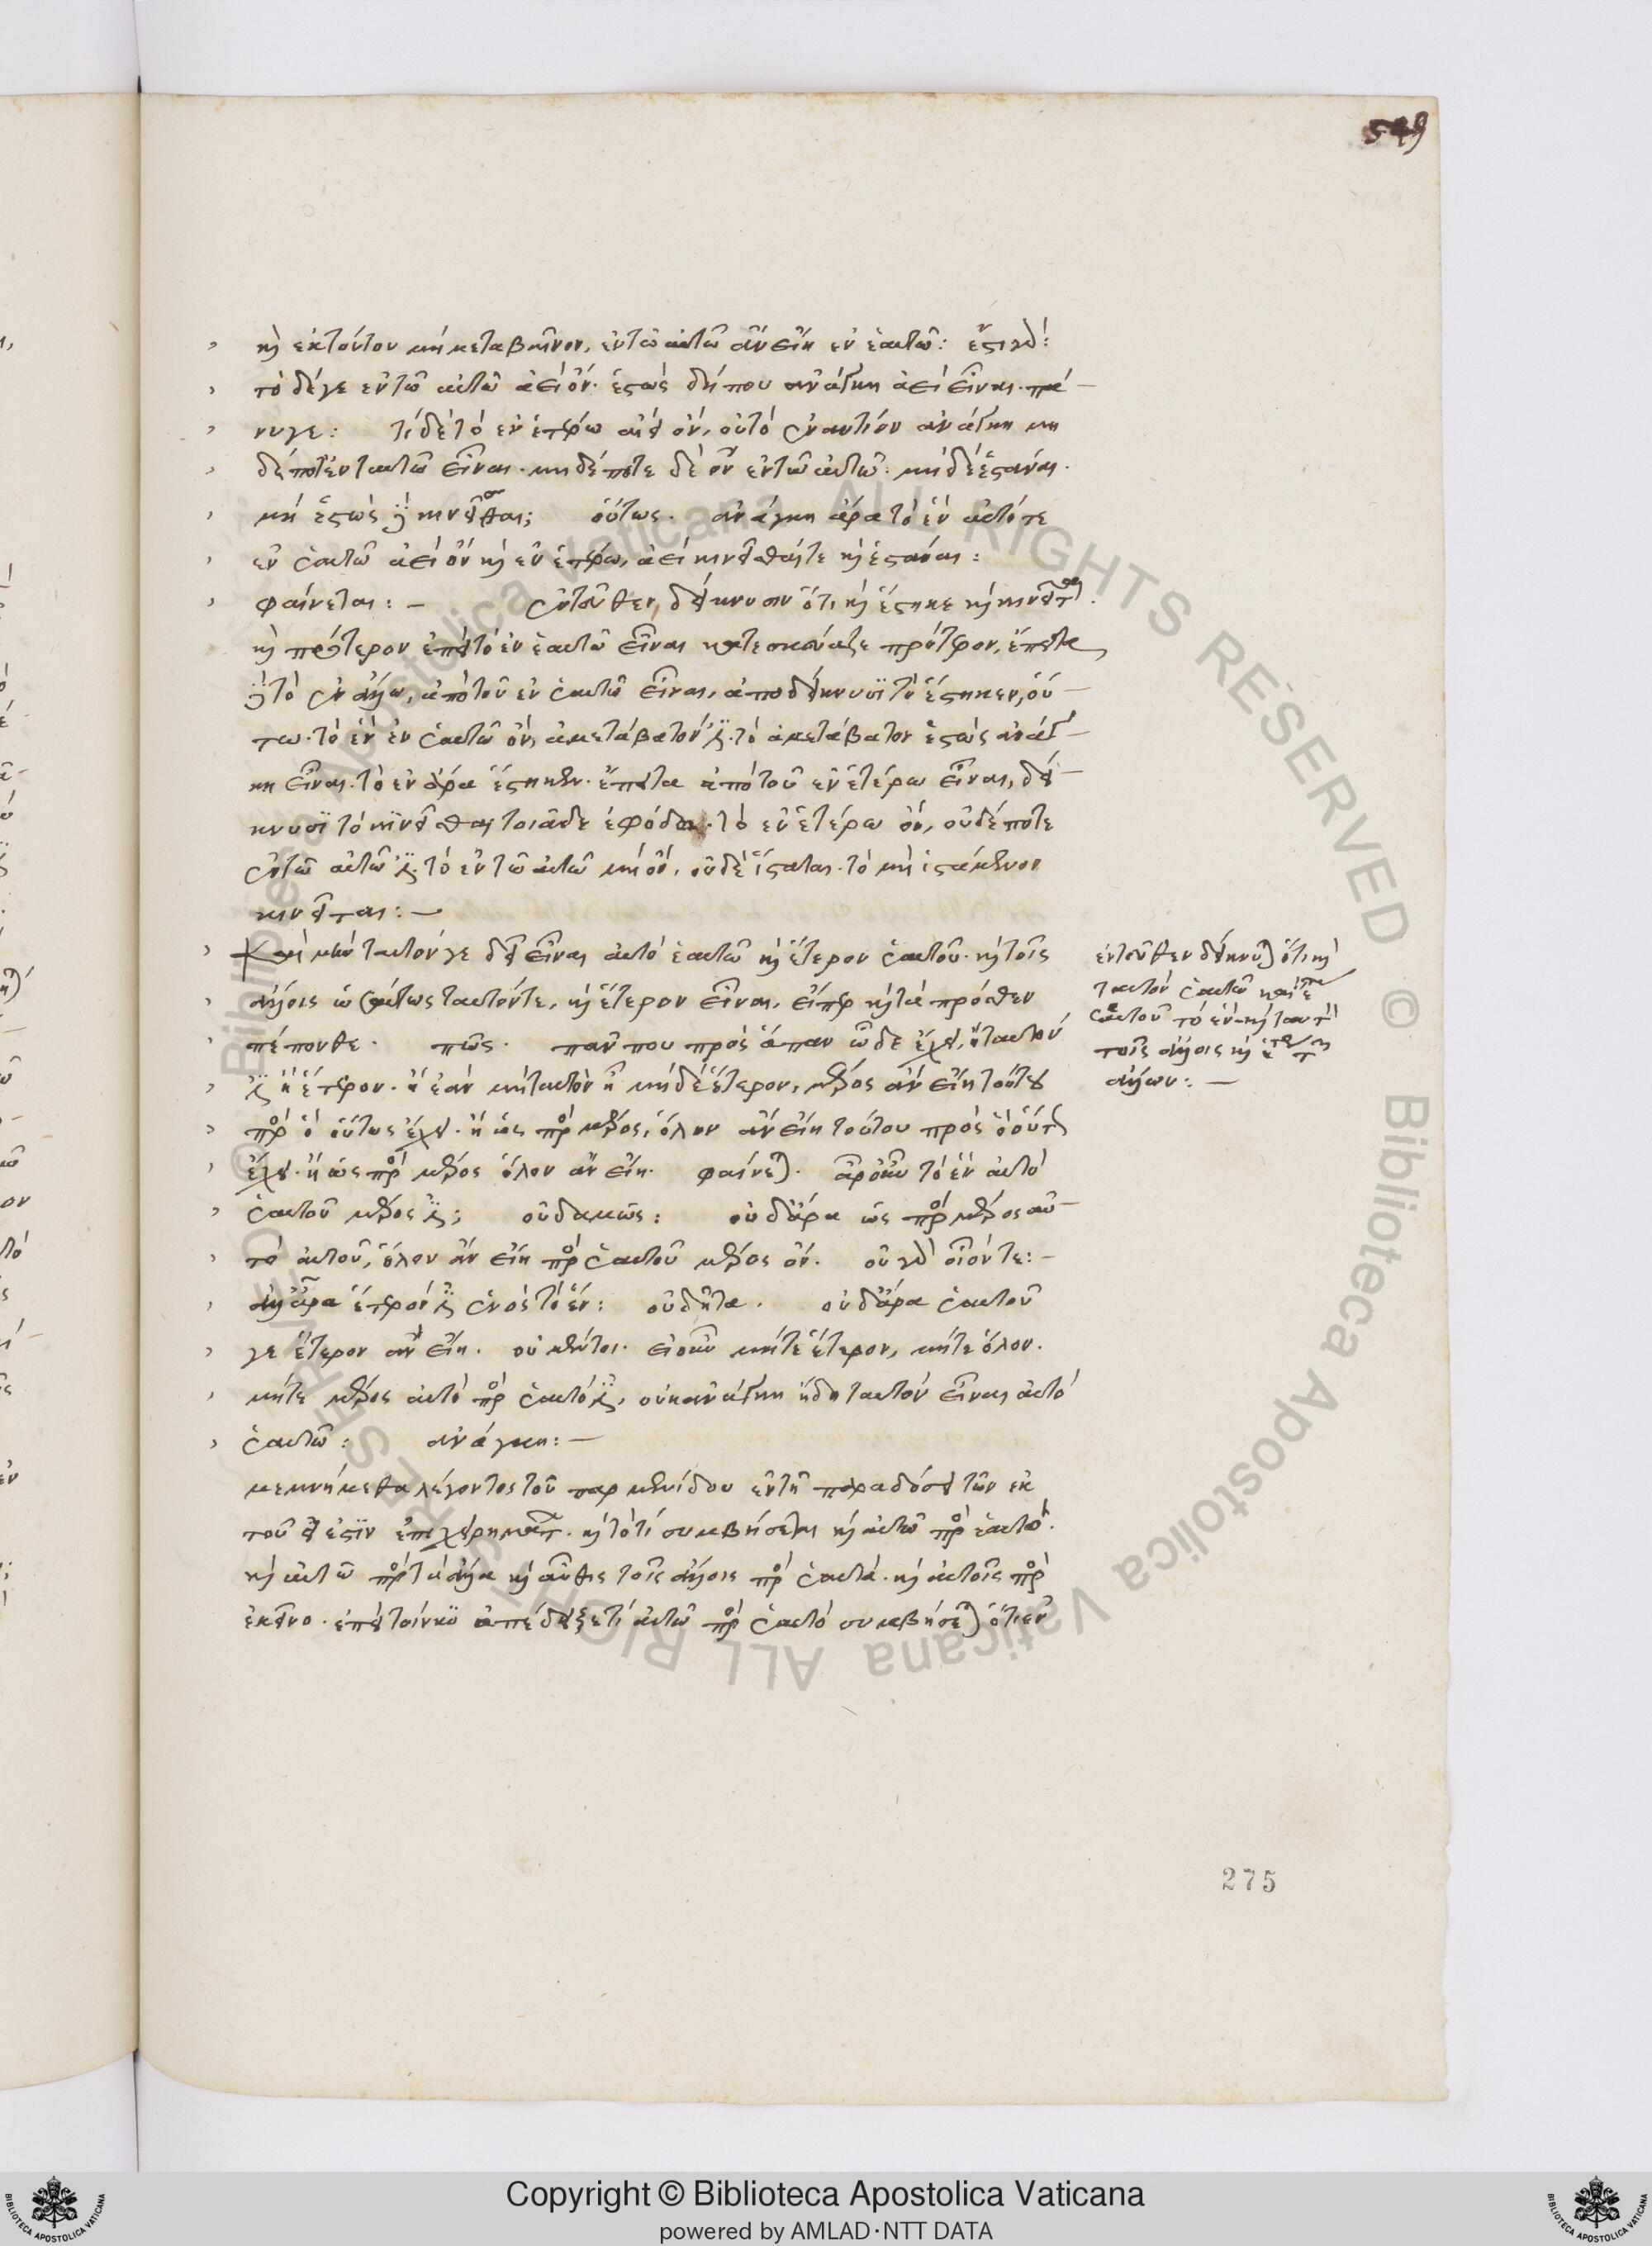 549
καὶ ἐκ τούτου μὴ μεταβαῖνον, ἐν τῶ αὐτῶ ἂν εἴη ἐν ἑαυτῶ: ἔστι γάρ:
τὸ δέ γε ἐν τῶ αὐτῶ ἀεὶ ὄν. ἑστὼς δήπου ἀνάγκη ἀεὶ εἶναι. πά-
νυ γε: τί δὲ τὸ ἐν ἑτέρω αἰεὶ ὄν, οὐ τὸ ἐναντίον ἀνάγκη μη
δέποτ' ἐν ταυτῶ εἶναι. μηδέποτε δὲ ὂν ἐν τῶ αὐτῶ. μὴ δὲ ἑστάναι.
μὴ ἑστὼς δὲ κινεῖσθαι; οὕτως. ἀνάγκη ἄρα τὸ ἓν αὐτό τε
ἐν ἑαυτῶ ἀεὶ ὂν καὶ ἐν ἑτέρω, ἀεὶ κινεῖσθαί τε καὶ ἑστάναι:
φαίνεται: – ἐντεῦθεν δείκνυσιν ὅτι καὶ ἕστηκε καὶ κινεῖται.
καὶ πρότερον ἐπεὶ τὸ ἐν ἑαυτῶ εἶναι κατεσκεύαζε πρότερον, ἔπειτα
δὲ τὸ ἐν ἄλλω, ἀπὸ τοῦ ἐν ἑαυτῶ εἶναι, ἀποδείκνυσι τὸ ἕστηκεν, οὕ-
τω. τὸ ἓν ἐν ἑαυτῶ ὄν, ἀμετάβατόν ἐστι. τὸ ἀμετάβατον ἑστὼς ἀνάγ-
κη εἶναι. τὸ ἓν ἄρα ἕστηκεν. ἔπειτα ἀπὸ τοῦ ἐν ἑτέρω εἶναι, δεί-
κνυσι τὸ κινεῖσθαι τοιᾶδε ἐφόδω. τὸ ἐν ἑτέρω ὄν, οὐδέποτε
ἐν τῶ αὐτῶ ἐστι. τὸ ἐν τῶ αὐτῶ μὴ ὄν, οὐδὲ ἵσταται. τὸ μὴ ἱστάμενον
κινεῖται: –
Καὶ μὴν ταυτόν γε δεῖ εἶναι αὐτὸ ἑαυτῶ καὶ ἕτερον ἑαυτοῦ. καὶ τοῖς
ἄλλοις ὡσαύτως ταυτόν τε, καὶ ἕτερον εἶναι, εἴπερ καὶ τὰ πρόσθεν
πέπονθε. πῶς. πᾶν που πρὸς ἅπαν ὧδε ἔχει, ἢ ταυτόν
ἐστι ἢ ἕτερον. ἢ ἐὰν μὴ ταυτὸν ἦ μὴδὲ ἕτερον, μέρος ἂν εἴη τούτου
πρὸς ὃ οὕτως ἔχει. ἢ ὡς πρὸς μέρος, ὅλον ἂν εἴη τούτου πρὸς ὃ οὕτως
ἔχει. ἢ ὡς πρὸς μέρος ὅλον ἂν εἴη. φαίνεται. ἆρ' οὖν τὸ ἓν αὐτὸ
ἑαυτοῦ μέρος ἐστί; οὐδαμῶς: οὐδ' ἄρα ὡς πρὸς μέρος αὐ-
τὸ αὑτοῦ, ὅλον ἂν εἴη πρὸς ἑαυτοῦ μέρος ὄν. οὐ γὰρ οἷόν τε: –
ἀλλ' ἆρα ἕτερόν ἐστι ἑνὸς τὸ ἕν: οὐ δῆτα. οὐδ' ἄρα ἑαυτοῦ
γε ἕτερον ἂν εἴη. οὐ μέντοι. εἰ οὖν μήτε ἕτερον, μήτε ὅλον.
μήτε μέρος αὐτὸ πρὸς ἑαυτό ἐστι, οὐκ ἀνάγκη ἤδη ταυτὸν εἶναι αὐτὸ
ἑαυτῶ: ἀνάγκη: –
μεμνήμεθα λέγοντος τοῦ παρμενίδου ἐν τῆ παραδόσει τῶν ἐκ
τοῦ εἰ ἔστιν ἐπιχειρημάτων. καὶ τὸ τί συμβήσεται καὶ αὐτῶ πρὸς ἑαυτό.
καὶ αὐτῶ πρὸς τὰ ἄλλα καὶ αὖθις τοῖς ἄλλοις πρὸς ἑαυτά. καὶ αὐτοῖς πρὸς
ἐκεῖνο. ἐπεὶ τοίνυν ἀπέδειξε τί αὐτῶ πρὸς ἑαυτὸ συμβήσεται ὅτι ἐν
ἐντεῦθεν δείκνυται ὅτι καὶ
ταυτὸν ἑαυτῶ καὶ ἕτερον
ἑαυτοῦ τὸ ἕν. καὶ ταυτὸν
τοῖς ἄλλοις καὶ ἕτερον τῶν
ἄλλων: –
275